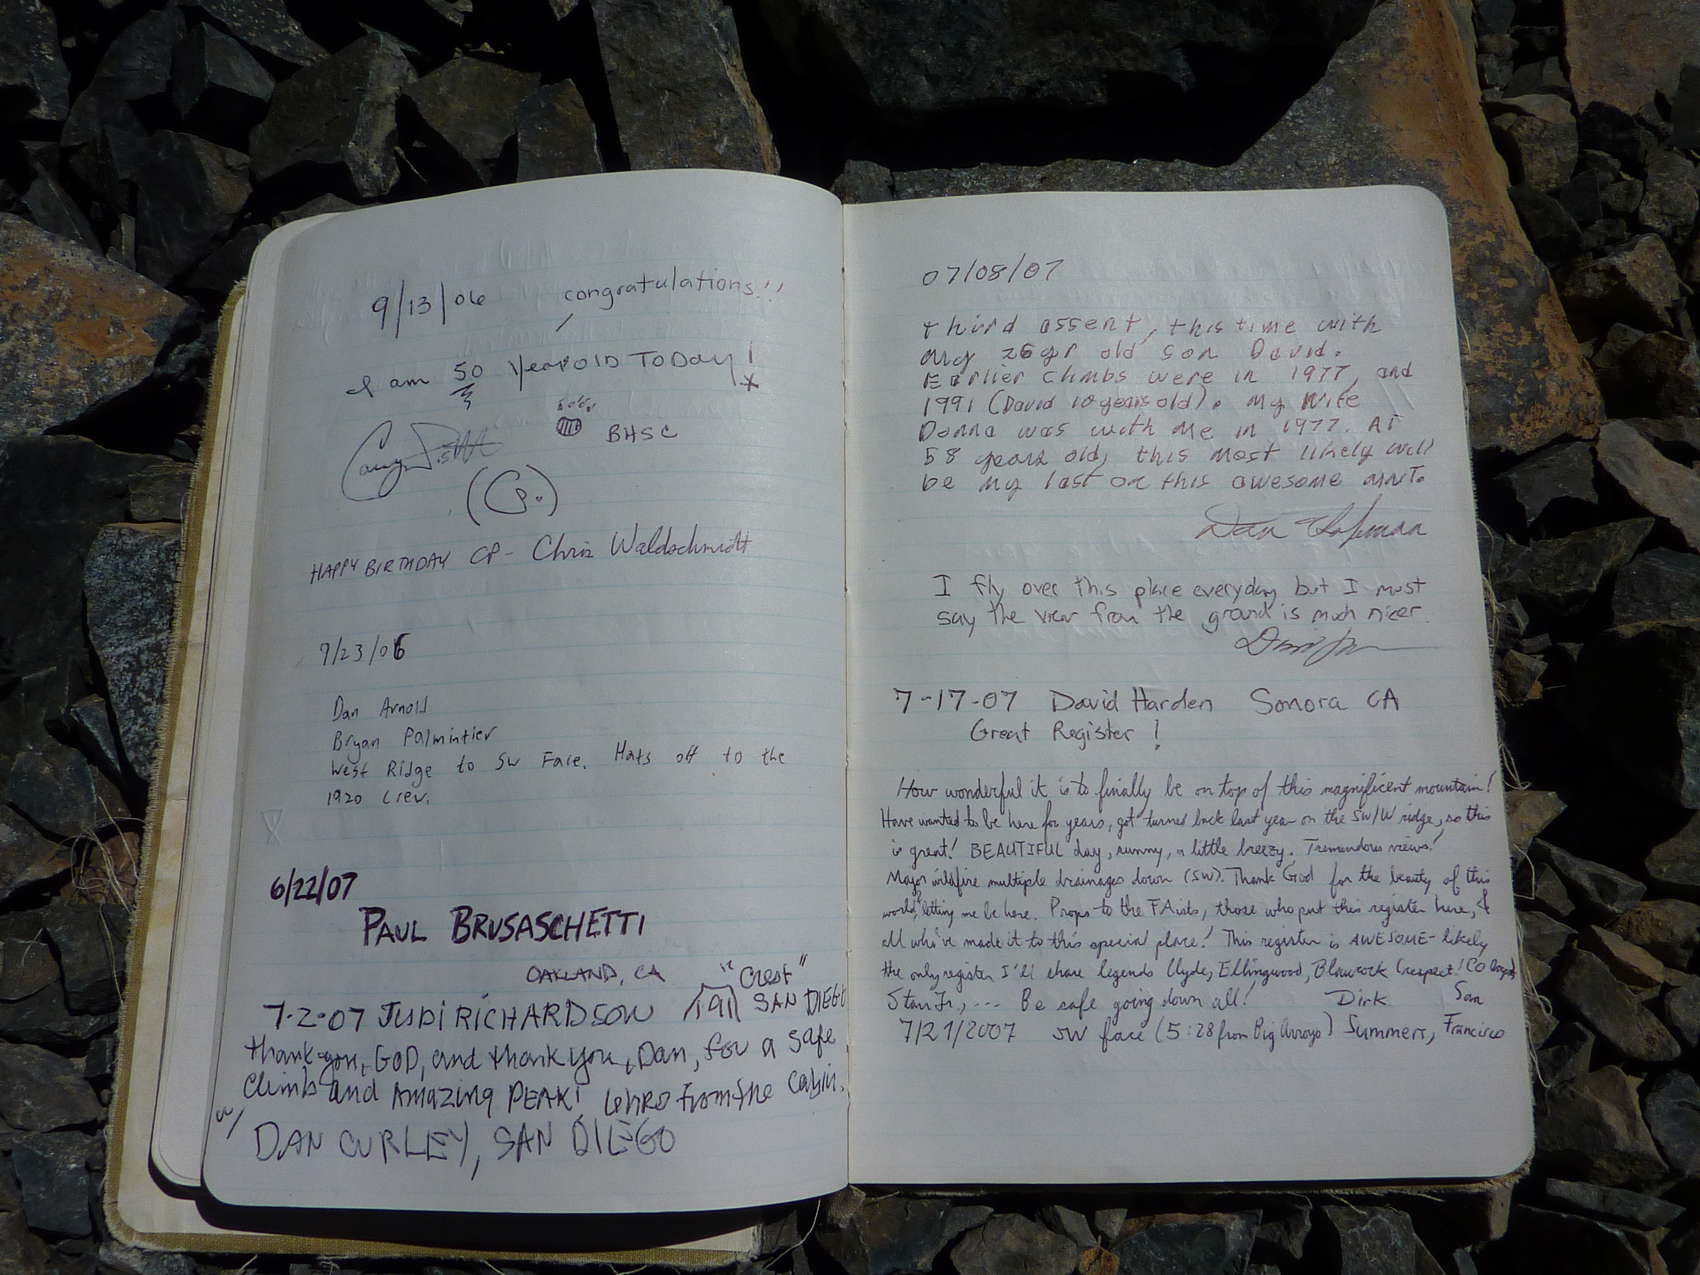 9/13/06 congratulations!!
I am 50 years OLD TODAY!
BHSC
(CP.)
HAPPY BIRTHDAY CP - Chris Waldschmidt
9/23/06
Dan Arnold
Bryan Palmintier
West Ridge to SW Face. Hats off to the
1920 crew.
6/22/07
PAUL BRUSASCHETTI
OAKLAND, CA
"Crest"
7-2-07 JUDI RICHARDSON SAN DIEGO
thank you, GOD, and thank you, Dan, for a safe
climb and Amazing PEAK! 6hrs from the cabin.
w/
DAN CURLEY, SAN DIEGO
07/08/07
third assent, this time with
my 26yr old son David.
Earlier climbs were in 1977, and
1991 (David 10 years old). My Wife
Donna was with me in 1977. At
58 years old, this most likely will
be my last on this awesome mnt.
Dan
I fly over this place everyday but I must
say the view from the ground is much nicer.
7-17-07 David Harden Sonora CA
Great Register!
How wonderful it is to finally be on top of this magnificent mountain!
Have wanted to be here for years, got turned back last year on the SW/W ridge, so this
is great! BEAUTIFUL day, sunny, a little breezy. Tremendous views!
Major wildfire multiple drainages down (SW). Thank God for the beauty of this
world, letting me be here. Props to the FAists, those who put this register here, &
all who've made it to this special place! This register is AWESOME - likely
the only register I'll share legends Clyde, Ellingwood, Blaurock (respect!
Starr Jr., ... Be safe going down all! Dirk San
7/21/2007 SW face (5:28 from Big Arroyo) Summers, Francisco